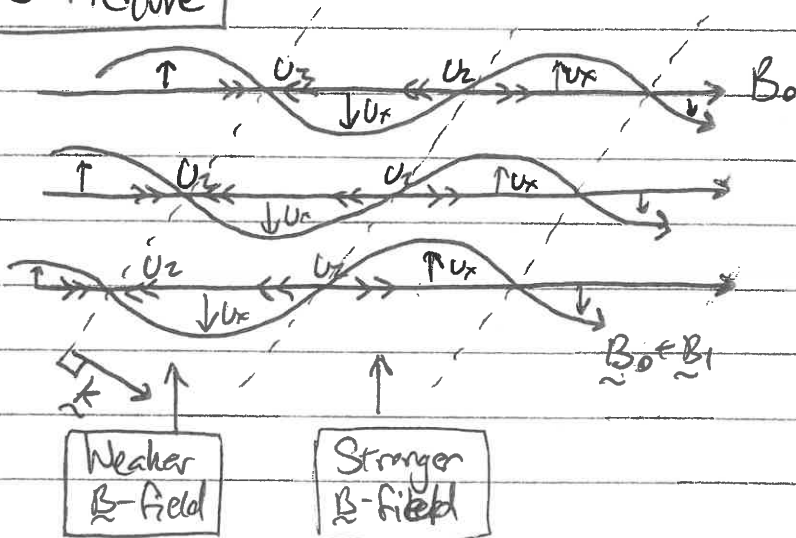 Picture
U_z U_z U_x B_0
U_x
U_z U_z U_x
U_x
U_z U_z U_x
U_x
B_0 + B_1
k
Weaker
B-field
Stronger
B-field